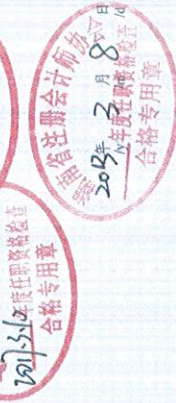 南省注册会计师协会
2013年3月8日
年度任职资格检查
合格专用章
2017.3.10
年度任职资格检查
合格专用章